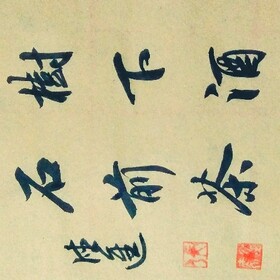 樹下酒
石前茶